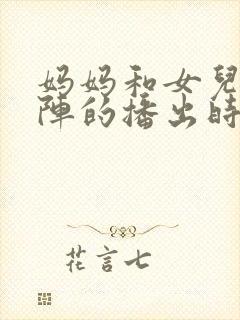 妈妈和女兒
陣的播出時
花言七